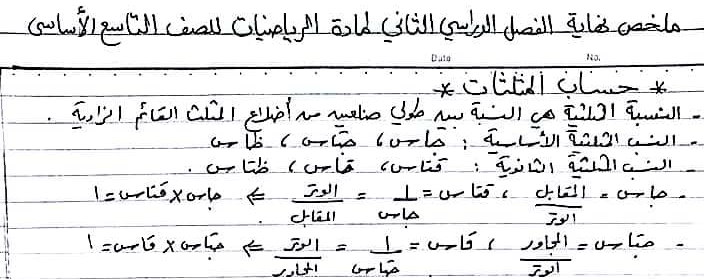 ملخص نهاية الفصل الدراسي الثاني لمادة الرياضيات للصف التاسع الأساسي
Date No.
* حساب المثلثات *
- النسبة المثلثية هي النسبة بين طولي ضلعين من أضلاع المثلث القائم الزاوية .
- النسب المثلثية الأساسية : جاس ، جتاس ، ظاس
- النسب المثلثية الثانوية : قتاس ، قاس ، ظتاس .
- جاس = المقابل / الوتر ، قتاس = 1 / جاس = الوتر / المقابل ⇐ جاس × قتاس = 1
- جتاس = المجاور / الوتر ، قاس = 1 / جتاس = الوتر / المجاور ⇐ جتاس × قاس = 1